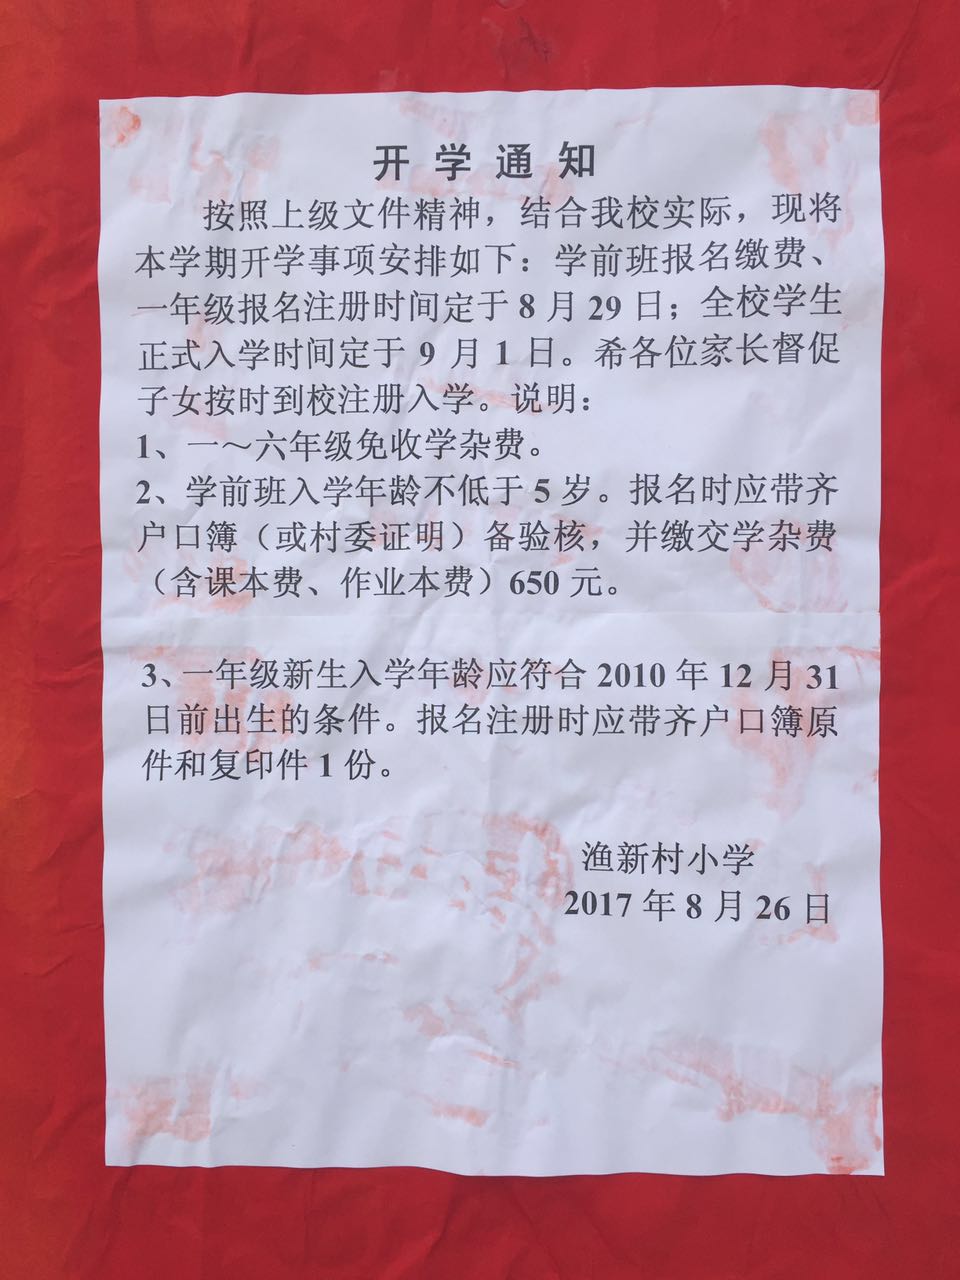 开学通知
按照上级文件精神，结合我校实际，现将
本学期开学事项安排如下：学前班报名缴费、
一年级报名注册时间定于8月29日；全校学生
正式入学时间定于9月1日。希各位家长督促
子女按时到校注册入学。说明：
1、一～六年级免收学杂费。
2、学前班入学年龄不低于5岁。报名时应带齐
户口簿（或村委证明）备验核，并缴交学杂费
（含课本费、作业本费）650元。
3、一年级新生入学年龄应符合2010年12月31
日前出生的条件。报名注册时应带齐户口簿原
件和复印件1份。
渔新村小学
2017年8月26日